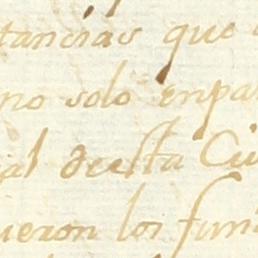 tancias que
no solo enpa
al desta Ciu
ueron los fun